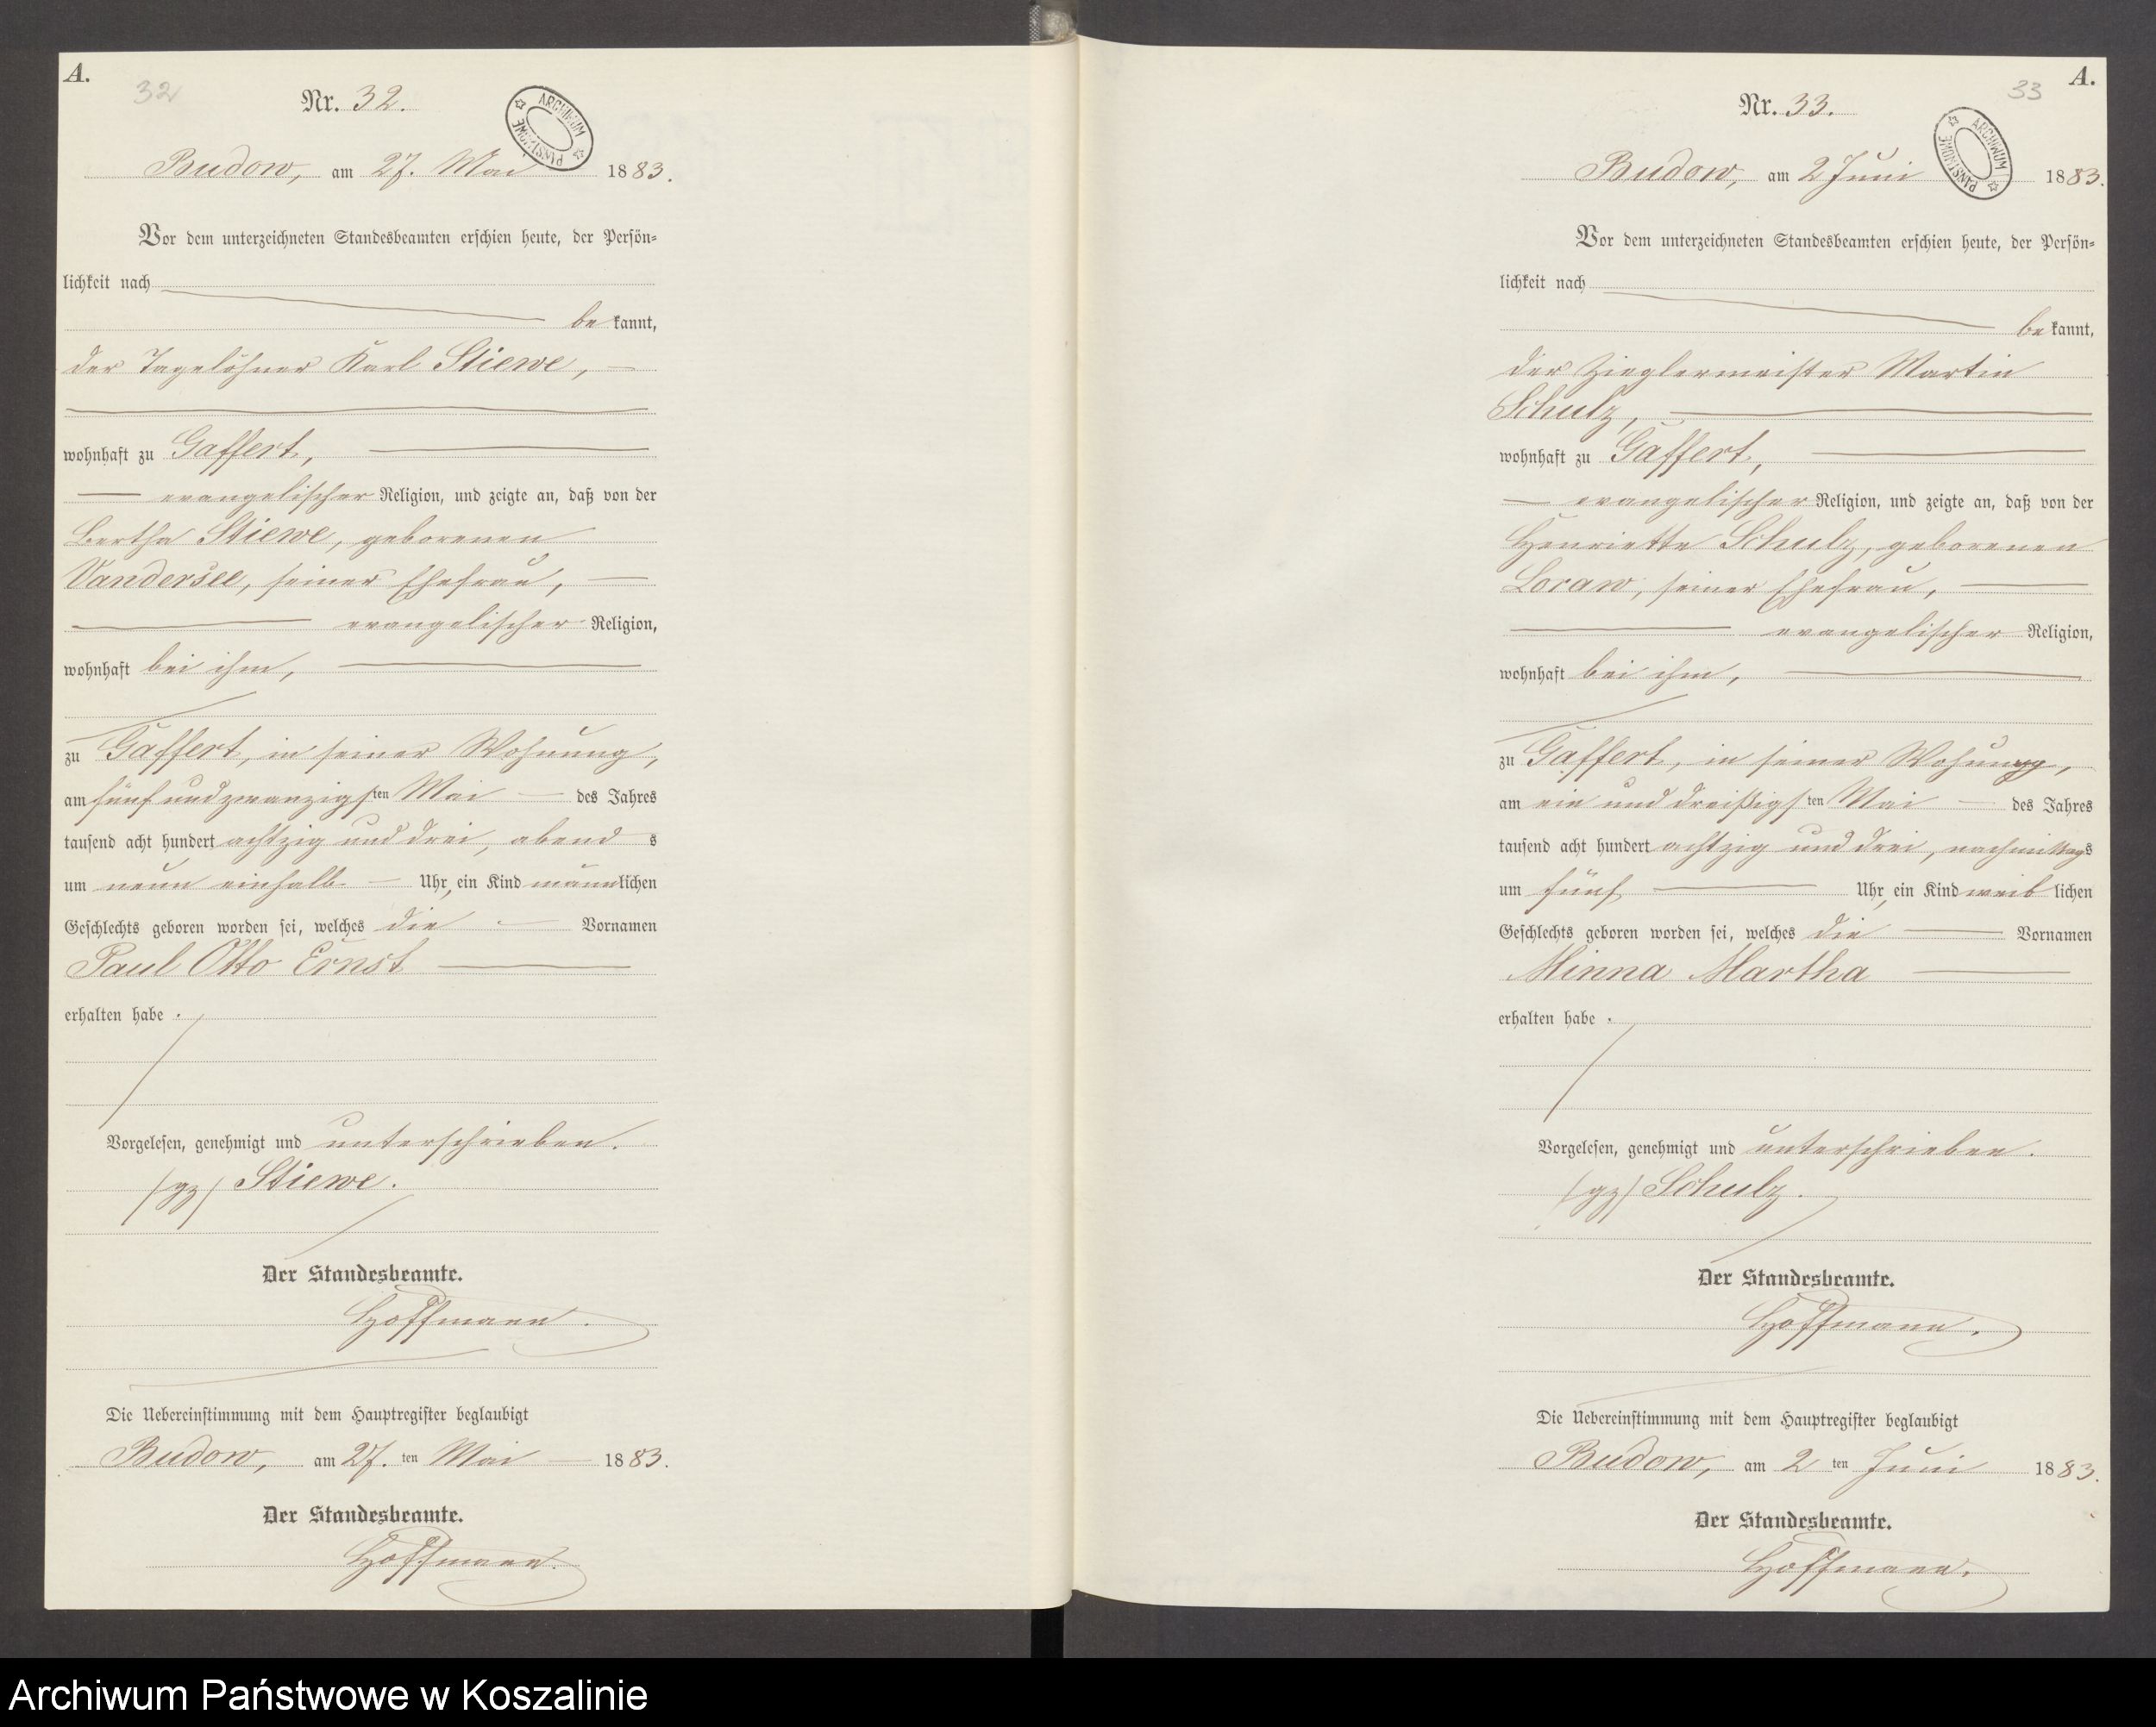 A.
32
Nr. 32.
ARCHIWUM PAŃSTWOWE
Budow, am 27. Mai 1883.
Vor dem unterzeichneten Standesbeamten erschien heute, der Persön-
lichkeit nach
bekannt,
der Tagelöhner Karl Stiewe,
wohnhaft zu Gaffert,
evangelischer Religion, und zeigte an, daß von der
Bertha Stiewe, geborenen
Vandersee, seiner Ehefrau,
evangelischer Religion,
wohnhaft bei ihm,
zu Gaffert, in seiner Wohnung,
am fünf und zwanzigsten Mai des Jahres
tausend acht hundert achtzig und drei, abends
um neun einhalb Uhr, ein Kind männlichen
Geschlechts geboren worden sei, welches die Vornamen
Paul Otto Ernst
erhalten habe.
Vorgelesen, genehmigt und unterschrieben.
(gz) Stiewe.
Der Standesbeamte.
Hoffmann.
Die Uebereinstimmung mit dem Hauptregister beglaubigt
Budow, am 27. ten Mai 1883.
Der Standesbeamte.
Hoffmann.
A.
33
Nr. 33.
ARCHIWUM PAŃSTWOWE
Budow, am 2 Juni 1883.
Vor dem unterzeichneten Standesbeamten erschien heute, der Persön-
lichkeit nach
bekannt,
der Zieglermeister Martin
Schulz,
wohnhaft zu Gaffert,
evangelischer Religion, und zeigte an, daß von der
Henriette Schulz, geborenen
Loraw, seiner Ehefrau,
evangelischer Religion,
wohnhaft bei ihm,
zu Gaffert, in seiner Wohnung,
am ein und dreißigsten Mai des Jahres
tausend acht hundert achtzig und drei, nachmittags
um fünf Uhr, ein Kind weiblichen
Geschlechts geboren worden sei, welches die Vornamen
Minna Martha
erhalten habe.
Vorgelesen, genehmigt und unterschrieben.
(gz) Schulz.
Der Standesbeamte.
Hoffmann.
Die Uebereinstimmung mit dem Hauptregister beglaubigt
Budow, am 2 ten Juni 1883.
Der Standesbeamte.
Hoffmann.
Archiwum Państwowe w Koszalinie